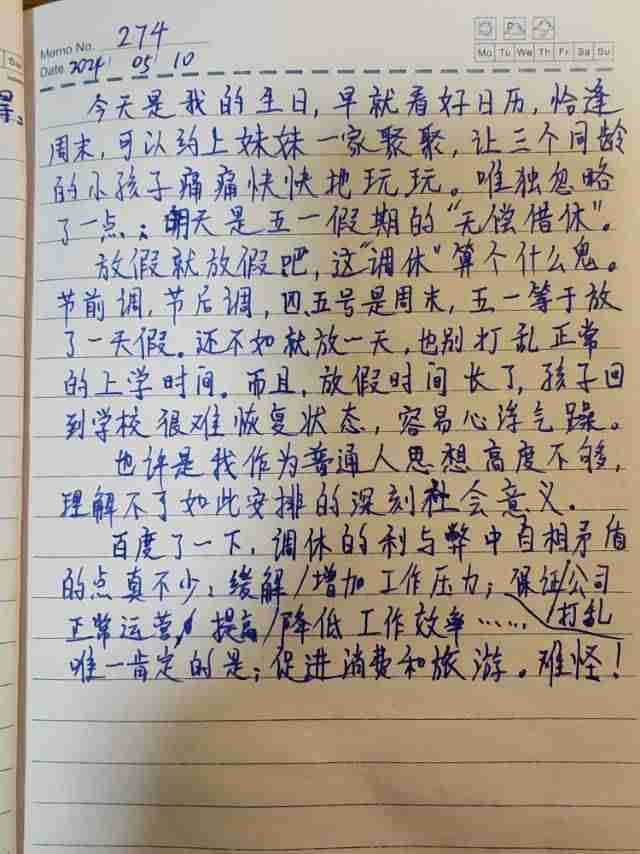 Memo No. 274
Mo Tu We Th Fr Sa Su
Date 2024 05 10
今天是我的生日，早就看好日历，恰逢
周末，可以约上妹妹一家聚聚，让三个同龄
的小孩子痛痛快快地玩玩。唯独忽略
了一点：明天是五一假期的“无偿借休”。
放假就放假吧，这“调休”算个什么鬼。
节前调，节后调，四、五号是周末，五一等于放
了一天假。还不如就放一天，也别打乱正常
的上学时间。而且，放假时间长了，孩子回
到学校很难恢复状态，容易心浮气躁。
也许是我作为普通人思想高度不够，
理解不了如此安排的深刻社会意义。
百度了一下，调休的利与弊中自相矛盾
的点真不少：缓解/增加工作压力；保证/公司
正常运营，提高/降低工作效率……/打乱
唯一肯定的是：促进消费和旅游。难怪！